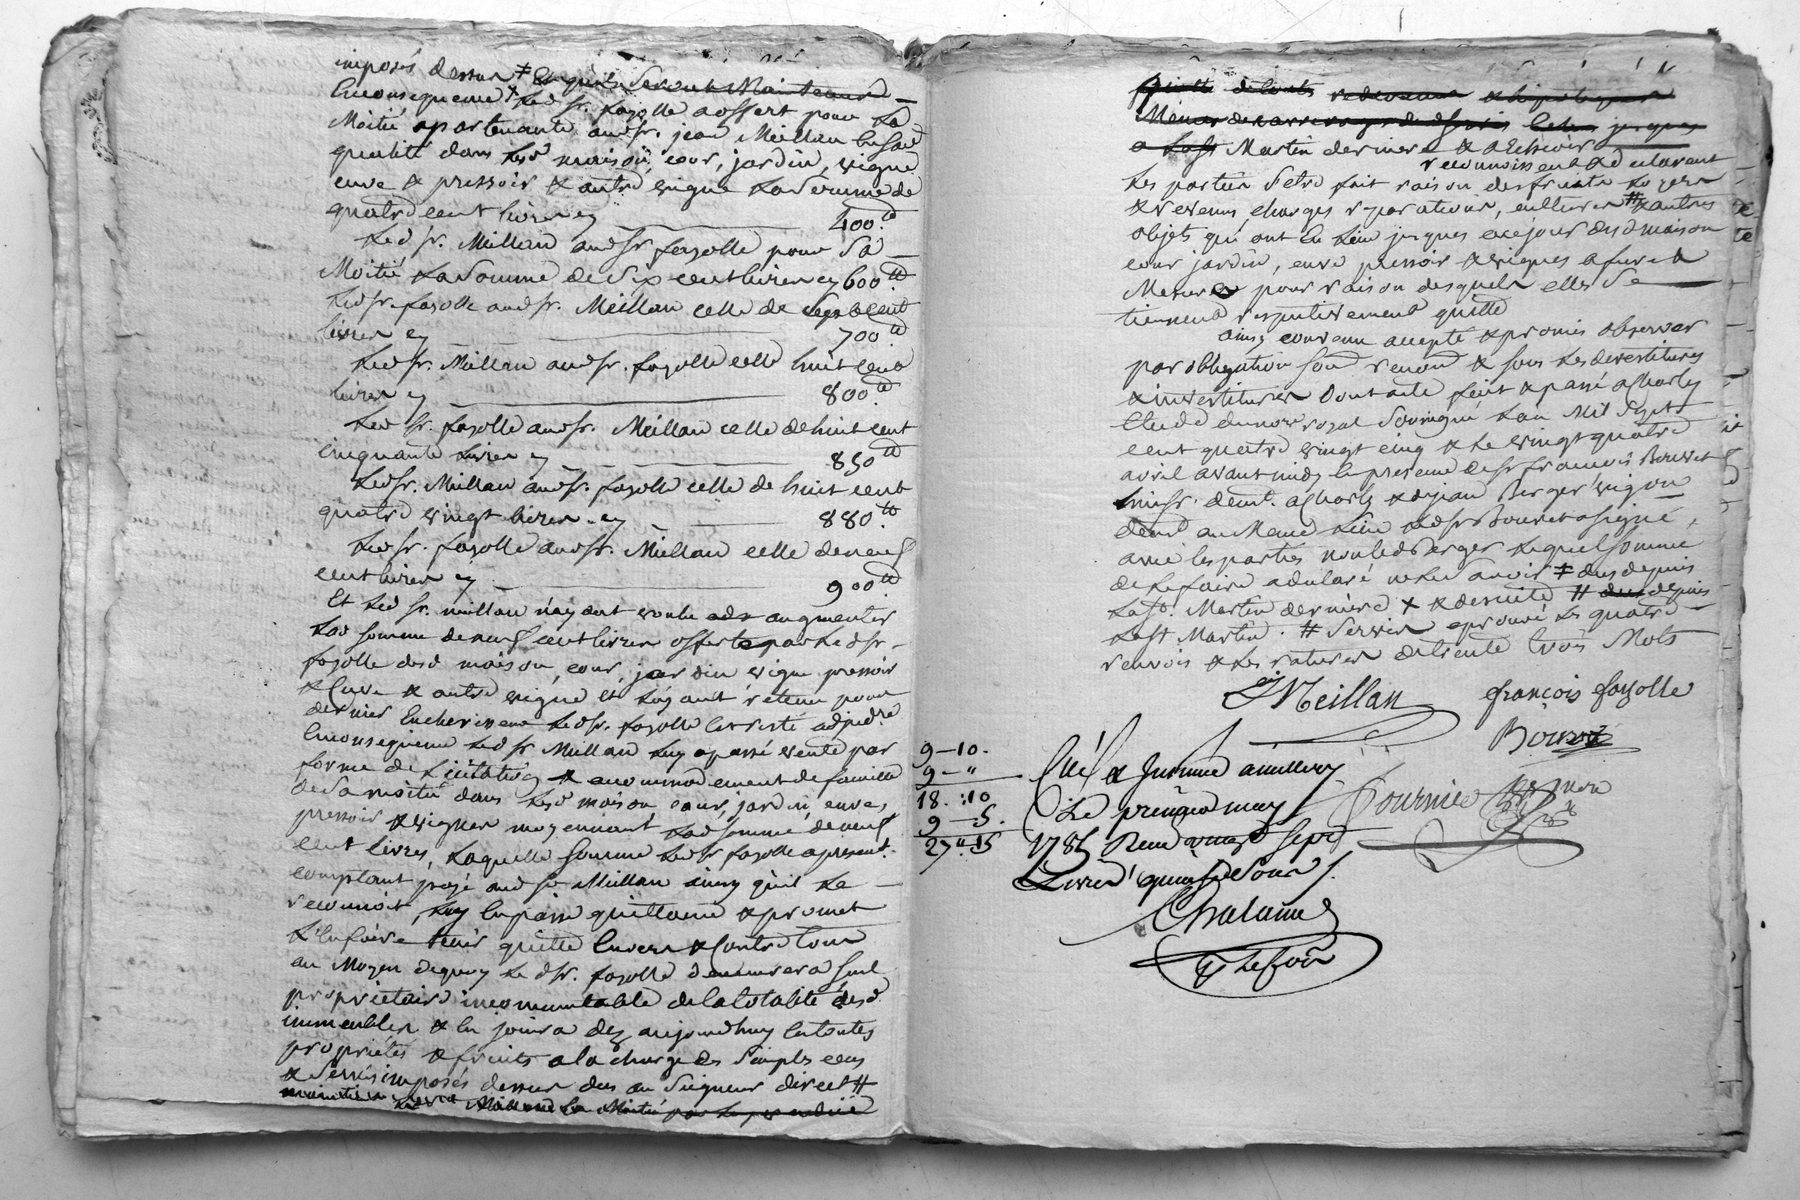 imposés dessus ≠ & quils seront Maintenus
Enconsequence + Led sr. fayolle a offert pour La
Moitié apartenante audsr. jean Meillan en sad
qualité dans lesd maison, cour, jardin, vigne
cuve & pressoir & autre vigne La Somme de
quatre cent livres cy 400.tt
Led sr. Meillan audsr fayolle pour Sa
Moitié La Somme de Six cent livres cy 600.tt
Led sr. fayolle audsr. Meillan celle de Sept Cent
livres cy 700.tt
Led sr. Meillan audsr. fayolle celle huit Cent
livres cy 800.tt
Led sr. fayolle audsr. Meillan celle de huit cent
cinquante Livres cy 850.tt
Led sr. Meillan audsr. fayolle celle de huit cent
quatre vingt livres cy 880.tt
Led sr. fayolle audsr. Meillan celle de neuf
cent livres cy 900.tt
Et Led sr. meillan n'ayant voulu augmenter
Lad somme de neuf cent livres offerte par Led sr
fayolle desd maison, cour, jardin vigne pressoir
& Cuve & autre vigne et Layant retenu pour
dernier Encherisseur Led sr. fayolle
Enconsequence Led sr Meillan Luy a passé vente par
forme de Licitation & accommodement de famille
de Sa moitié dans Lesd maison cour, jardin, cuves,
pressoir & vignes moyennant Lad Somme de neuf
cent Livres, Laquelle Somme Led sr fayolle a present.
comptant payé aud sr Meillan ainsy qu'il Le
reconnoit, Luy En passe quittance & promet
L'En faire tenir quitte Envers & Contre tous
au Moyen dequoy Le dsr. fayolle demeurera seul
propriétaire incommutable de la totalité desd
immeubles & En jouira dez aujourdhuy En toutes
propriétés & fruits a la charge des Simples cens
& Servis imposés dessus dus au Seigneur direct #
Led sr Meillan La Moitié
quitte
a La St Martin derniere &
reconnoissent & declarent
Les parties Setre fait raison des fruits Loyers
& revenus charges reparations, cultures # & autres
objets qui ont Eu Lieu jusques cejour desd maison
cour jardin, cuve pressoir & vignes a fur &
Mesure pour raison desquels elles Se
tiennent respectivement quitte
ainsy convenu accepté & promis observer
par obligation Soud renond & Sous Les devestitures
& investitures Dont acte fait & passé a Charly
Etude du nore royal Soussigné Lan Mil Sept
cent quatre vingt cinq & Le vingt quatre
avril avant midy En presence de sr francois Bouvet
demt. a Charly & de jean Berger vigon
demt au Meme Lieu Led sr Bouvet a signé,
avec les parties non led Berger Lequel Somme
de Le faire a declaré ne Le Savoir ≠ dus depuis
La St. Martin derniere + & densuite # dus depuis
La St Martin. # Servis aprouvé Les quatre
renvois & Les ratures de trente trois Mots
Meillan
françois fayolle
Bouvet
9 — 10.
9 — "
18. : 10
9 — 5.
27 " 15
Cllé & Insinué a millery
Le premier may
1785 Reçu vingt sept
Livres quinze Sous /.
Fournier
Chalaine